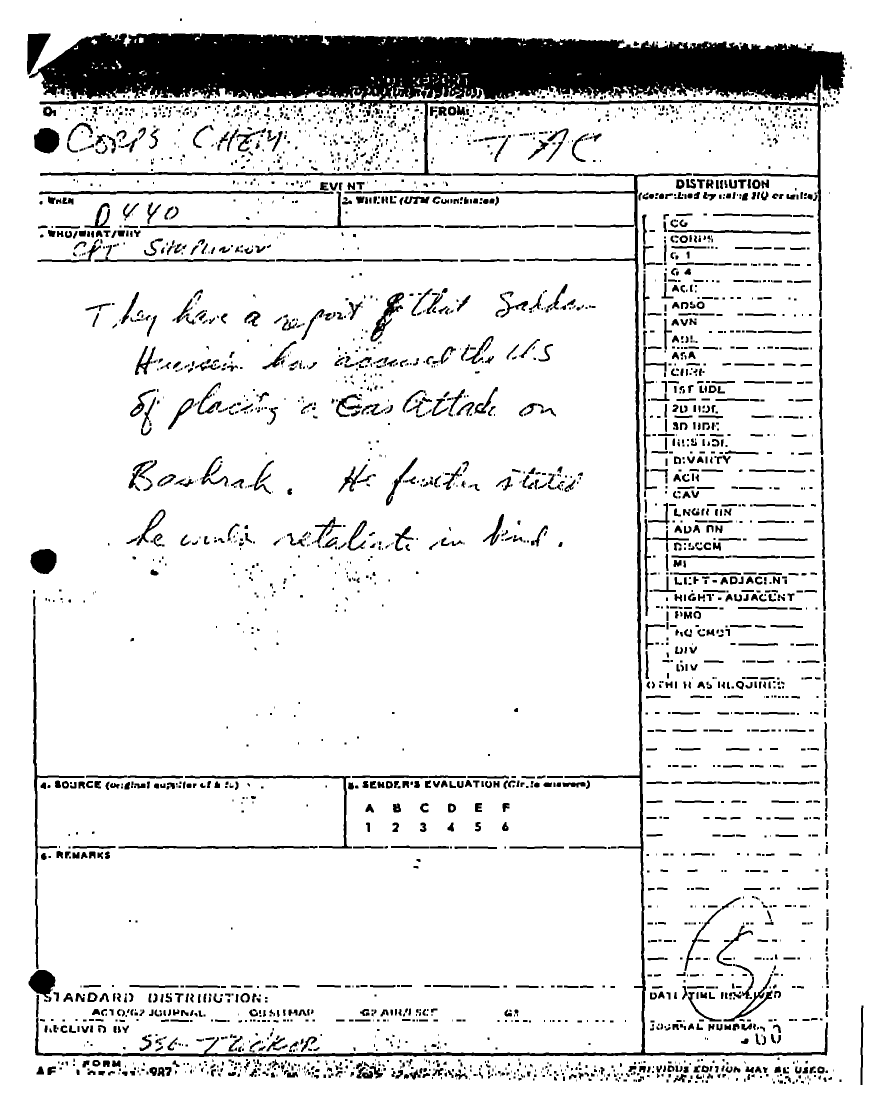 SPOT REPORT
FROM:
CORPS CHEM
TAC
EVENT
DISTRIBUTION
(determined by using HQ or units)
1. WHEN
0440
2. WHERE (UTM Coordinates)
3. WHO/WHAT/WHY
CPT
They have a report that Saddam
Hussein has accused the U.S
of placing a Gas Attack on
Bashrah. He further stated
he would retaliate in kind.
CG
CORPS
G 1
G 4
ACE
ADSO
AVN
ASA
1ST BDE
2D BDE
3D BDE
RES BDE
DIVARTY
ACR
CAV
ENGR BN
ADA BN
DISCOM
MI
LEFT - ADJACENT
RIGHT - ADJACENT
PMO
HQ CMDT
DIV
DIV
OTHER AS REQUIRED
4. SOURCE (original supplier of info)
5. SENDER'S EVALUATION (Circle answers)
A B C D E F
1 2 3 4 5 6
6. REMARKS
5
STANDARD DISTRIBUTION:
ACTO/G2 JOURNAL G2 SITMAP G2 AIR/FSCE G3
DATE/TIME RECEIVED
RECEIVED BY
SSG TUCKER
JOURNAL NUMBER
60
FORM
PREVIOUS EDITION MAY BE USED.